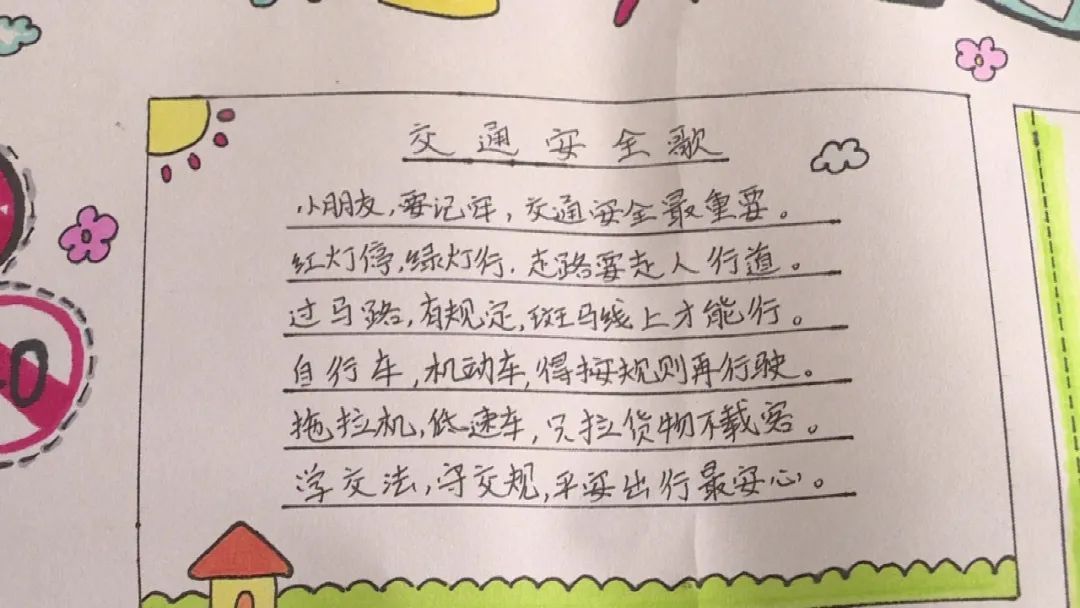 交通安全歌
小朋友,要记牢,交通安全最重要。
红灯停,绿灯行,走路要走人行道。
过马路,有规定,斑马线上才能行。
自行车,机动车,得按规则再行驶。
拖拉机,低速车,只拉货物不载客。
学交法,守交规,平安出行最安心。